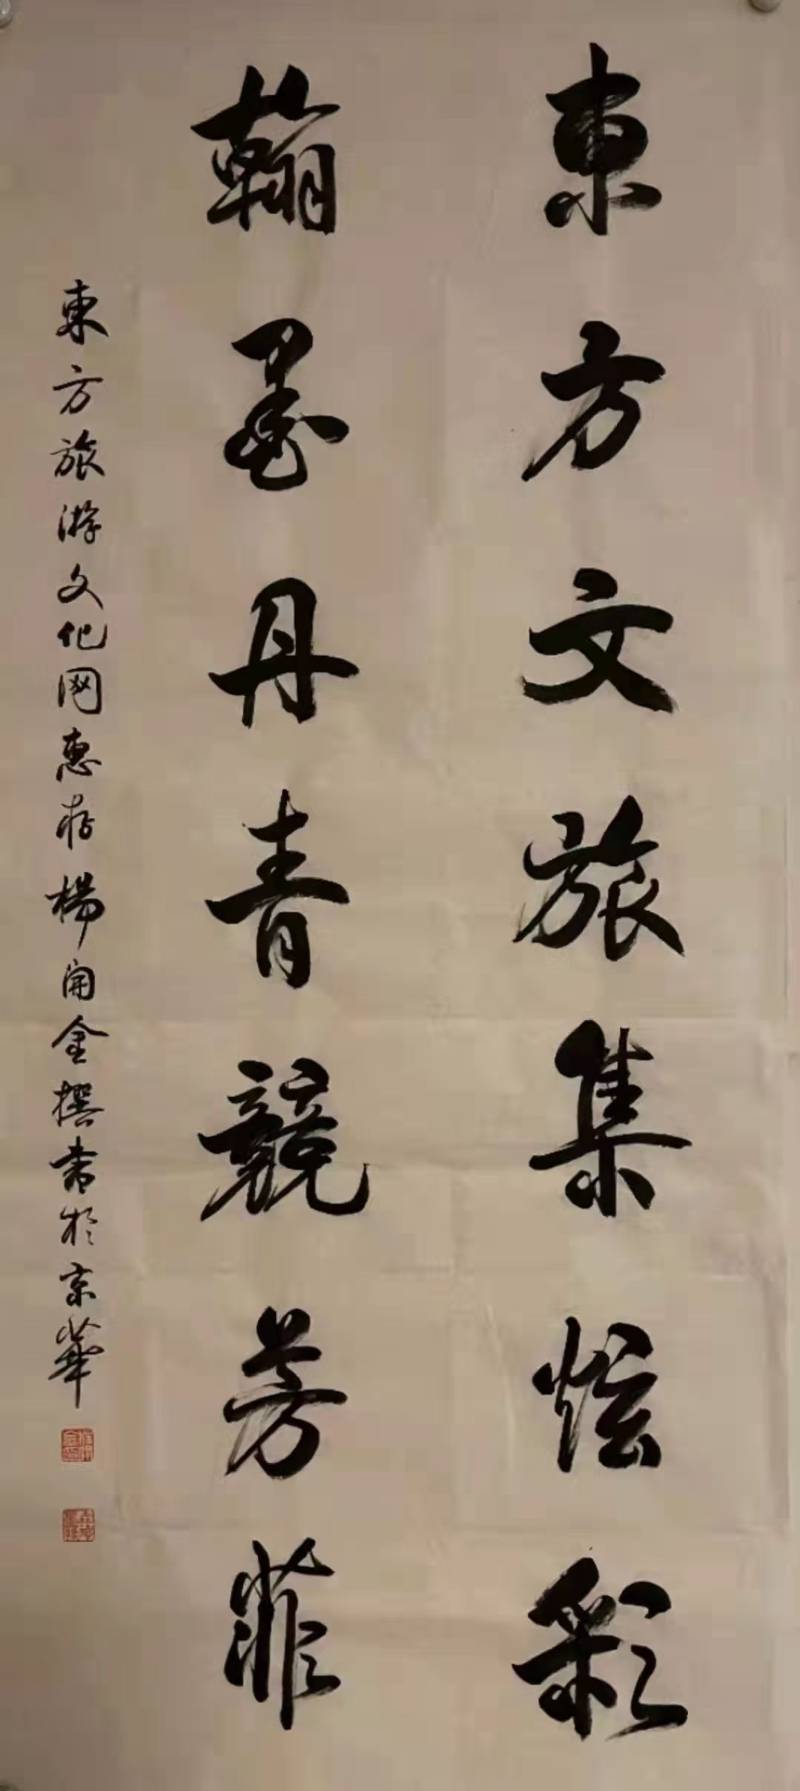 東方文旅集炫彩
翰墨丹青競芳菲
東方旅游文化网惠存楊开金撰书於京華